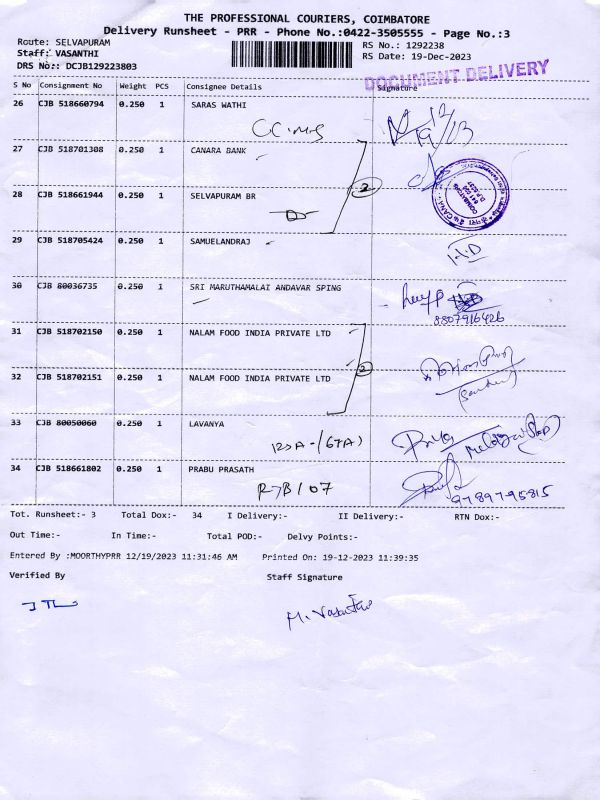 THE PROFESSIONAL COURIERS, COIMBATORE
Delivery Runsheet - PRR - Phone No.:0422-3505555 - Page No.:3
Route: SELVAPURAM
Staff: VASANTHI
DRS No: DCJB129223803
RS No.: 1292238
RS Date: 19-Dec-2023
DOCUMENT DELIVERY
S No Consignment No Weight PCS Consignee Details Signature
26 CJB 518660794 0.250 1 SARAS WATHI
27 CJB 518701308 0.250 1 CANARA BANK
28 CJB 518661944 0.250 1 SELVAPURAM BR
2
29 CJB 518705424 0.250 1 SAMUELANDRAJ
30 CJB 80036735 0.250 1 SRI MARUTHAMALAI ANDAVAR SPING
8807916426
31 CJB 518702150 0.250 1 NALAM FOOD INDIA PRIVATE LTD
2
32 CJB 518702151 0.250 1 NALAM FOOD INDIA PRIVATE LTD
33 CJB 80050060 0.250 1 LAVANYA
123A-(67A) Priya
34 CJB 518661802 0.250 1 PRABU PRASATH
97897-95815
Tot. Runsheet:- 3 Total Dox:- 34 I Delivery:- II Delivery:- RTN Dox:-
Out Time:- In Time:- Total POD:- Delvy Points:-
Entered By :MOORTHYPRR 12/19/2023 11:31:46 AM Printed On: 19-12-2023 11:39:35
Verified By Staff Signature
M. Vasanthi